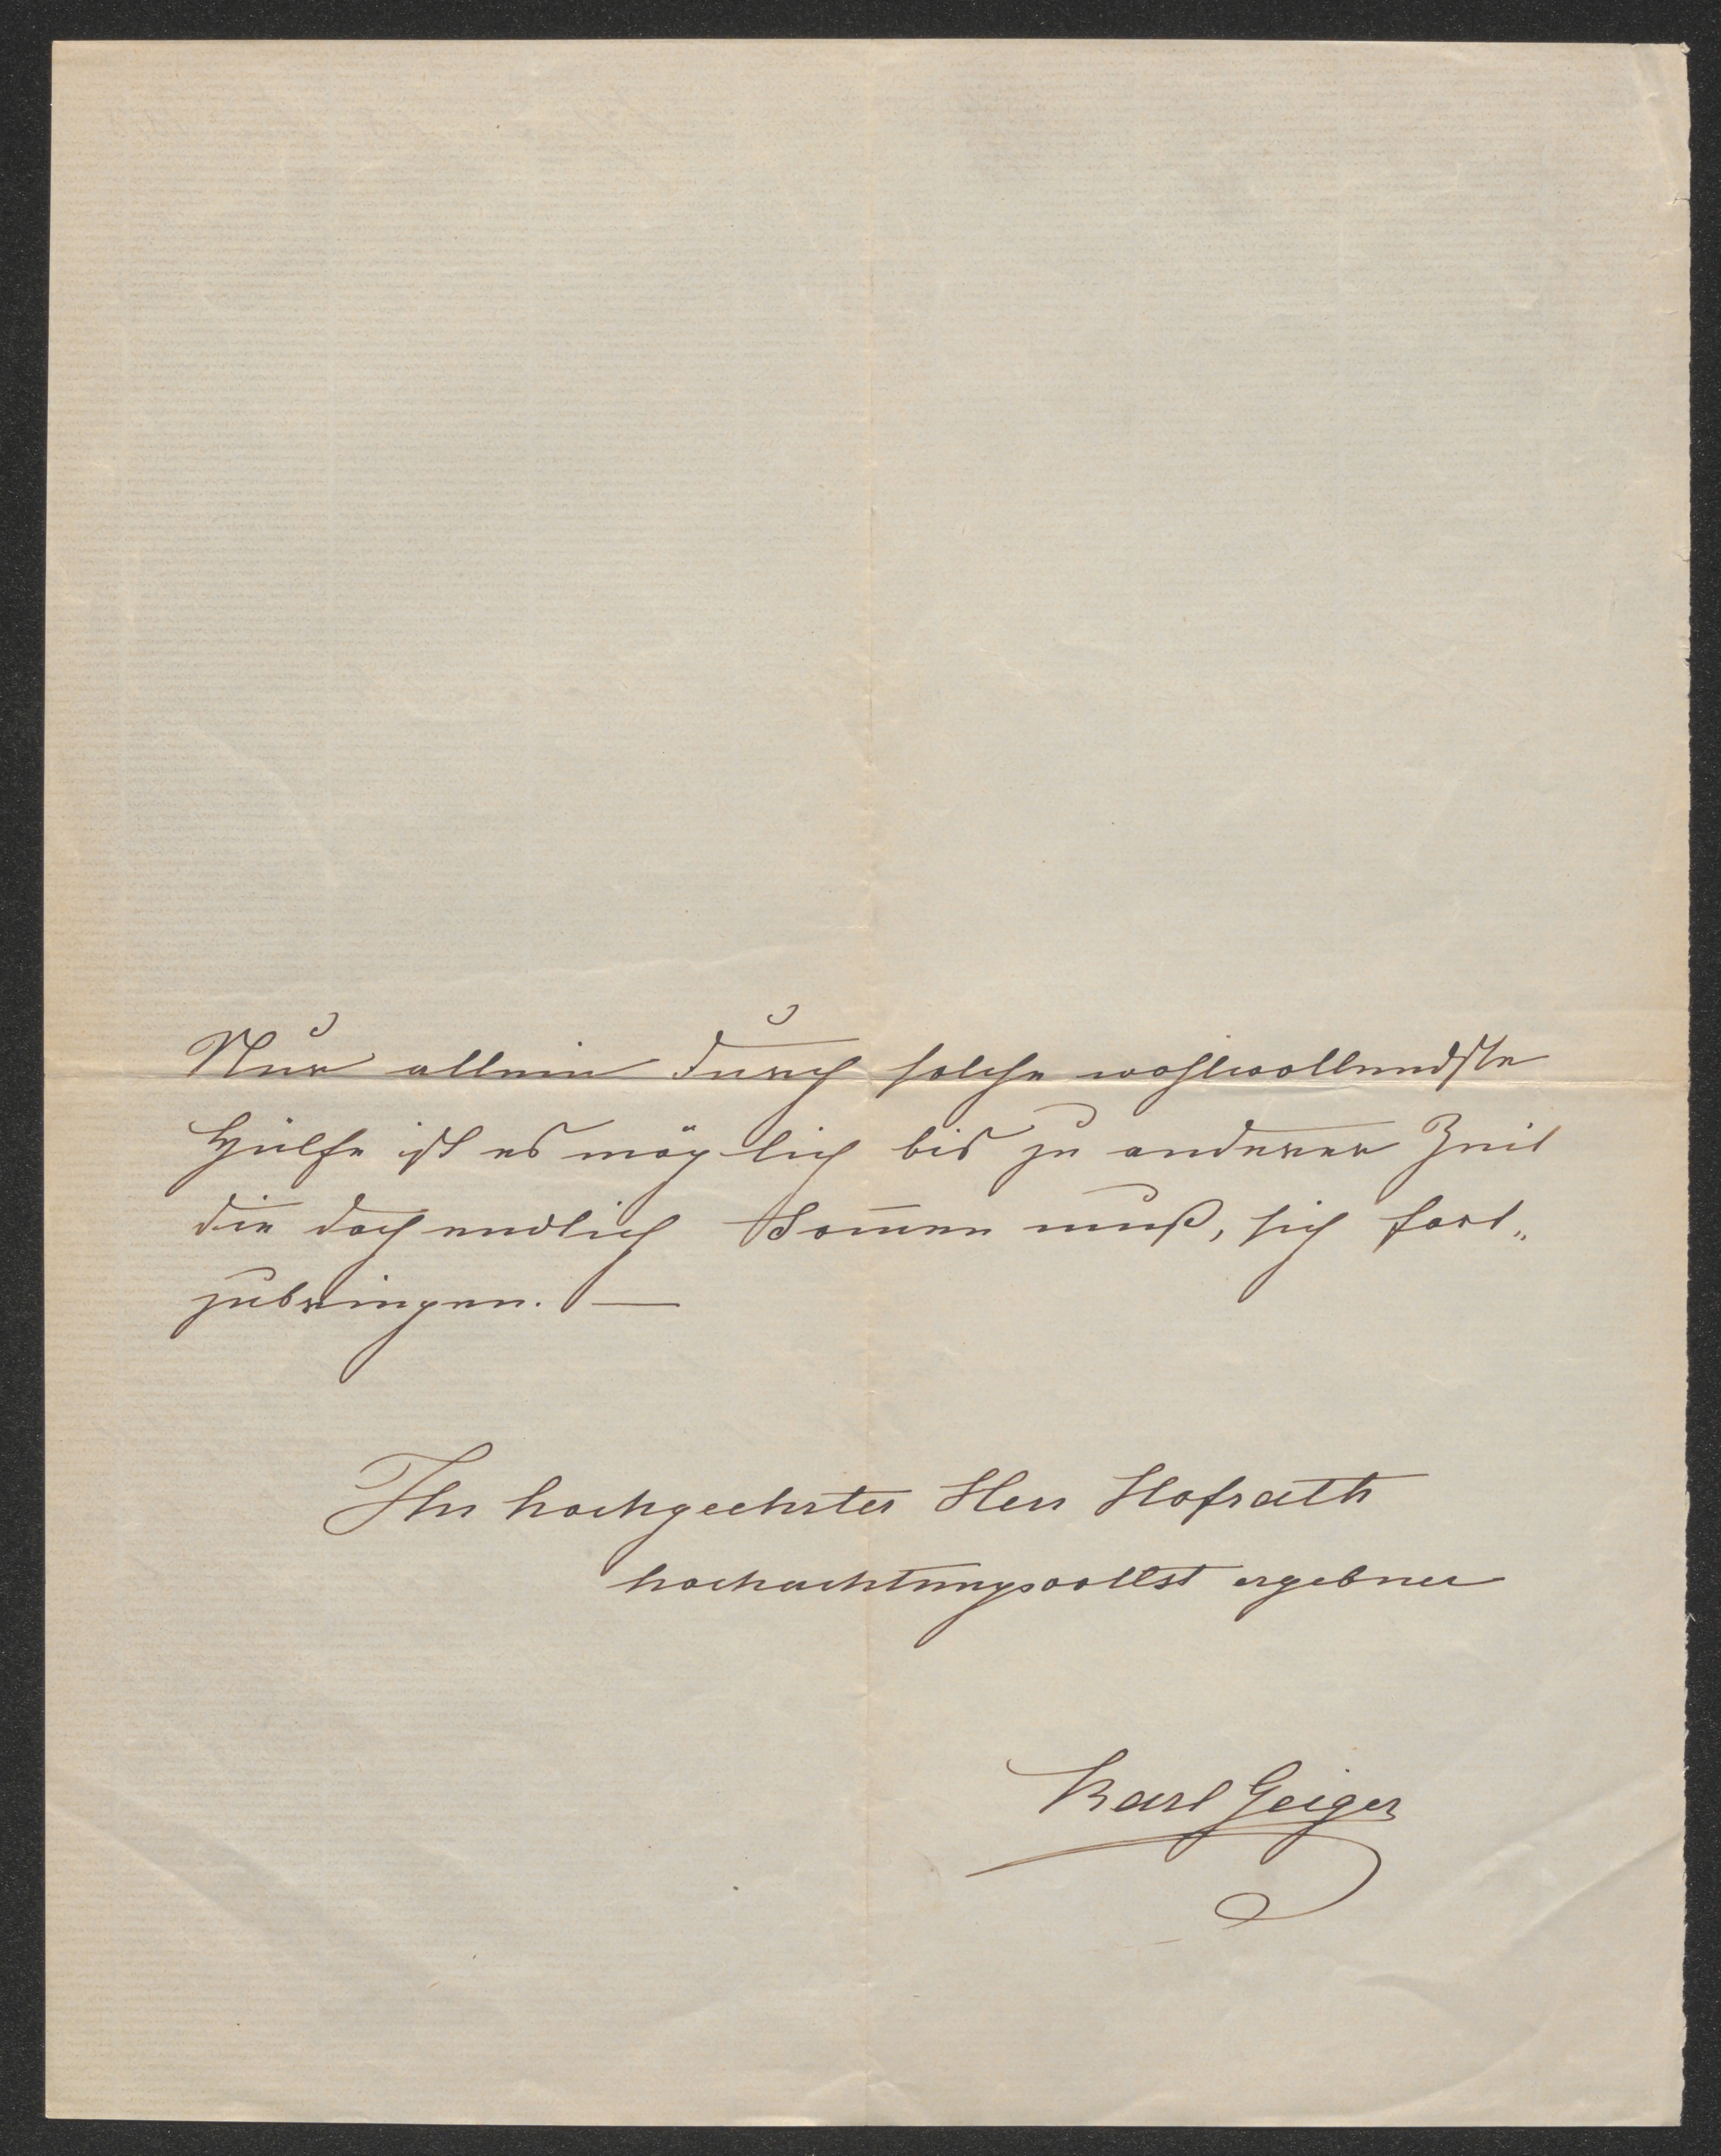 Nur allein durch solche wohlwollendste
Hülfe ist es möglich bis zu anderer Zeit
die doch endlich kom̅en muß, sich fort„
zubringen. —
Ihr hochgeehrter Herr Hofrath
hochachtungsvollst ergebner
Karl Geiger